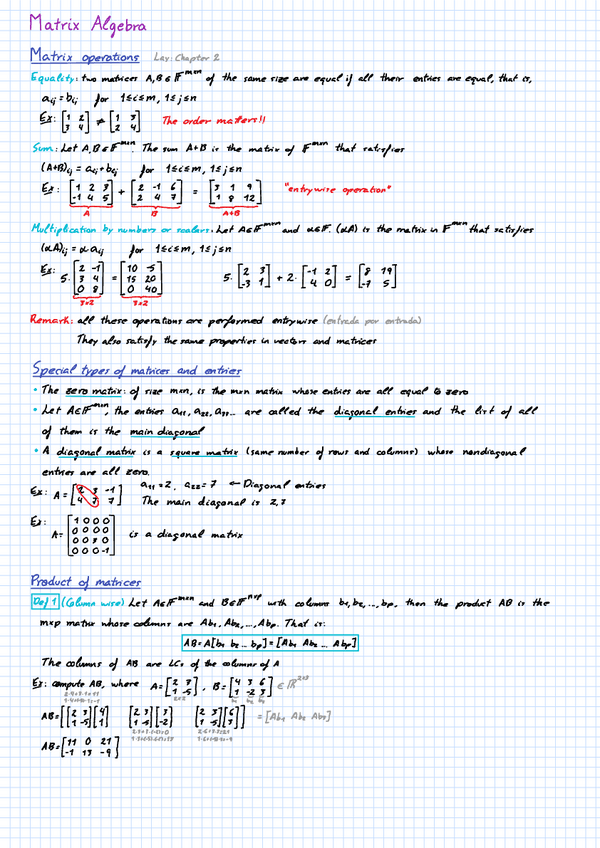 Matrix Algebra
Matrix operations Lay: Chapter 2
Equality: two matrices A,B∈𝔽^m×n of the same size are equal if all their entries are equal, that is,
aij = bij for 1≤i≤m, 1≤j≤n
Ex: [1 2; 3 4] ≠ [1 3; 2 4] The order matters!!
Sum: Let A,B∈𝔽^m×n. The sum A+B is the matrix of 𝔽^m×n that satisfies
(A+B)ij = aij+bij for 1≤i≤m, 1≤j≤n
Ex: [1 2 3; -1 4 5] + [2 -1 6; 2 4 7] = [3 1 9; 1 8 12] "entrywise operation"
A B A+B
Multiplication by numbers or scalars: Let A∈𝔽^m×n and α∈𝔽. (αA) is the matrix in 𝔽^m×n that satisfies
(αA)ij = α aij for 1≤i≤m, 1≤j≤n
Ex: 5·[2 -1; 3 4; 0 8] = [10 -5; 15 20; 0 40] 5·[2 3; -3 1] + 2·[-1 2; 4 0] = [8 19; -7 5]
3×2 3×2
Remark: all these operations are performed entrywise (entrada por entrada)
They also satisfy the same properties in vectors and matrices
Special types of matrices and entries
• The zero matrix: of size m×n, is the m×n matrix whose entries are all equal to zero
• Let A∈𝔽^m×n, the entries a11, a22, a33... are called the diagonal entries and the list of all
of them is the main diagonal
• A diagonal matrix is a square matrix (same number of rows and columns) whose nondiagonal
entries are all zero.
Ex: A = [2 3 -1; 4 7 7] a11=2, a22=7 ← Diagonal entries
The main diagonal is 2,7
Ex: A= [1 0 0 0; 0 0 0 0; 0 0 3 0; 0 0 0 -1] is a diagonal matrix
Product of matrices
Def 1 (Column wise) Let A∈𝔽^m×n and B∈𝔽^n×p with columns b1,b2,...,bp, then the product AB is the
m×p matrix whose columns are Ab1, Ab2,..., Abp. That is:
AB = A[b1 b2 ... bp] = [Ab1 Ab2 ... Abp]
The columns of AB are LCs of the columns of A
Ex: compute AB, where A=[2 3; 1 -5], B=[4 3 6; 1 -2 3] ∈ ℝ^2×3
2×2 b1 b2 b3
AB=[[2 3; 1 -5][4; 1] [2 3; 1 -5][3; -2] [2 3; 1 -5][6; 3]] = [Ab1 Ab2 Ab3]
AB=[11 0 21; -1 13 -9]